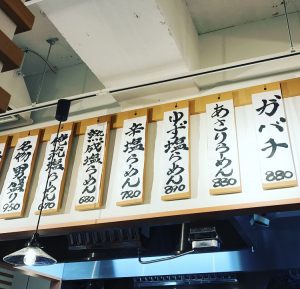 ガパナ
880
あさりらーめん
830
ゆず塩らーめん
810
辛塩らーめん
780
熟成塩らーめん
680
塩らーめん
名物男盛り
950